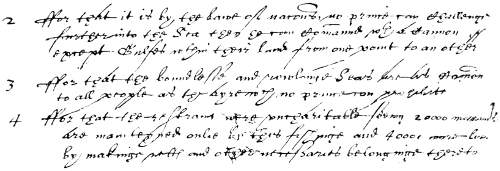 2 ffor that it is by the lawe of nacions, no prince can Challenge
further into the Sea then he can command wth a Cannon
except Gulfes within their land from one point to an other
3 ffor that the boundlesse and rowlinge Seas are as Common
to all people as the ayre wch no prince can prohibite
4 ffor that the restraint were uncharitable seeing 20000 mariners
are maintayned onlie by this fishinge and 40000 more live
by makinge netts and other necessaries belonginge thereto